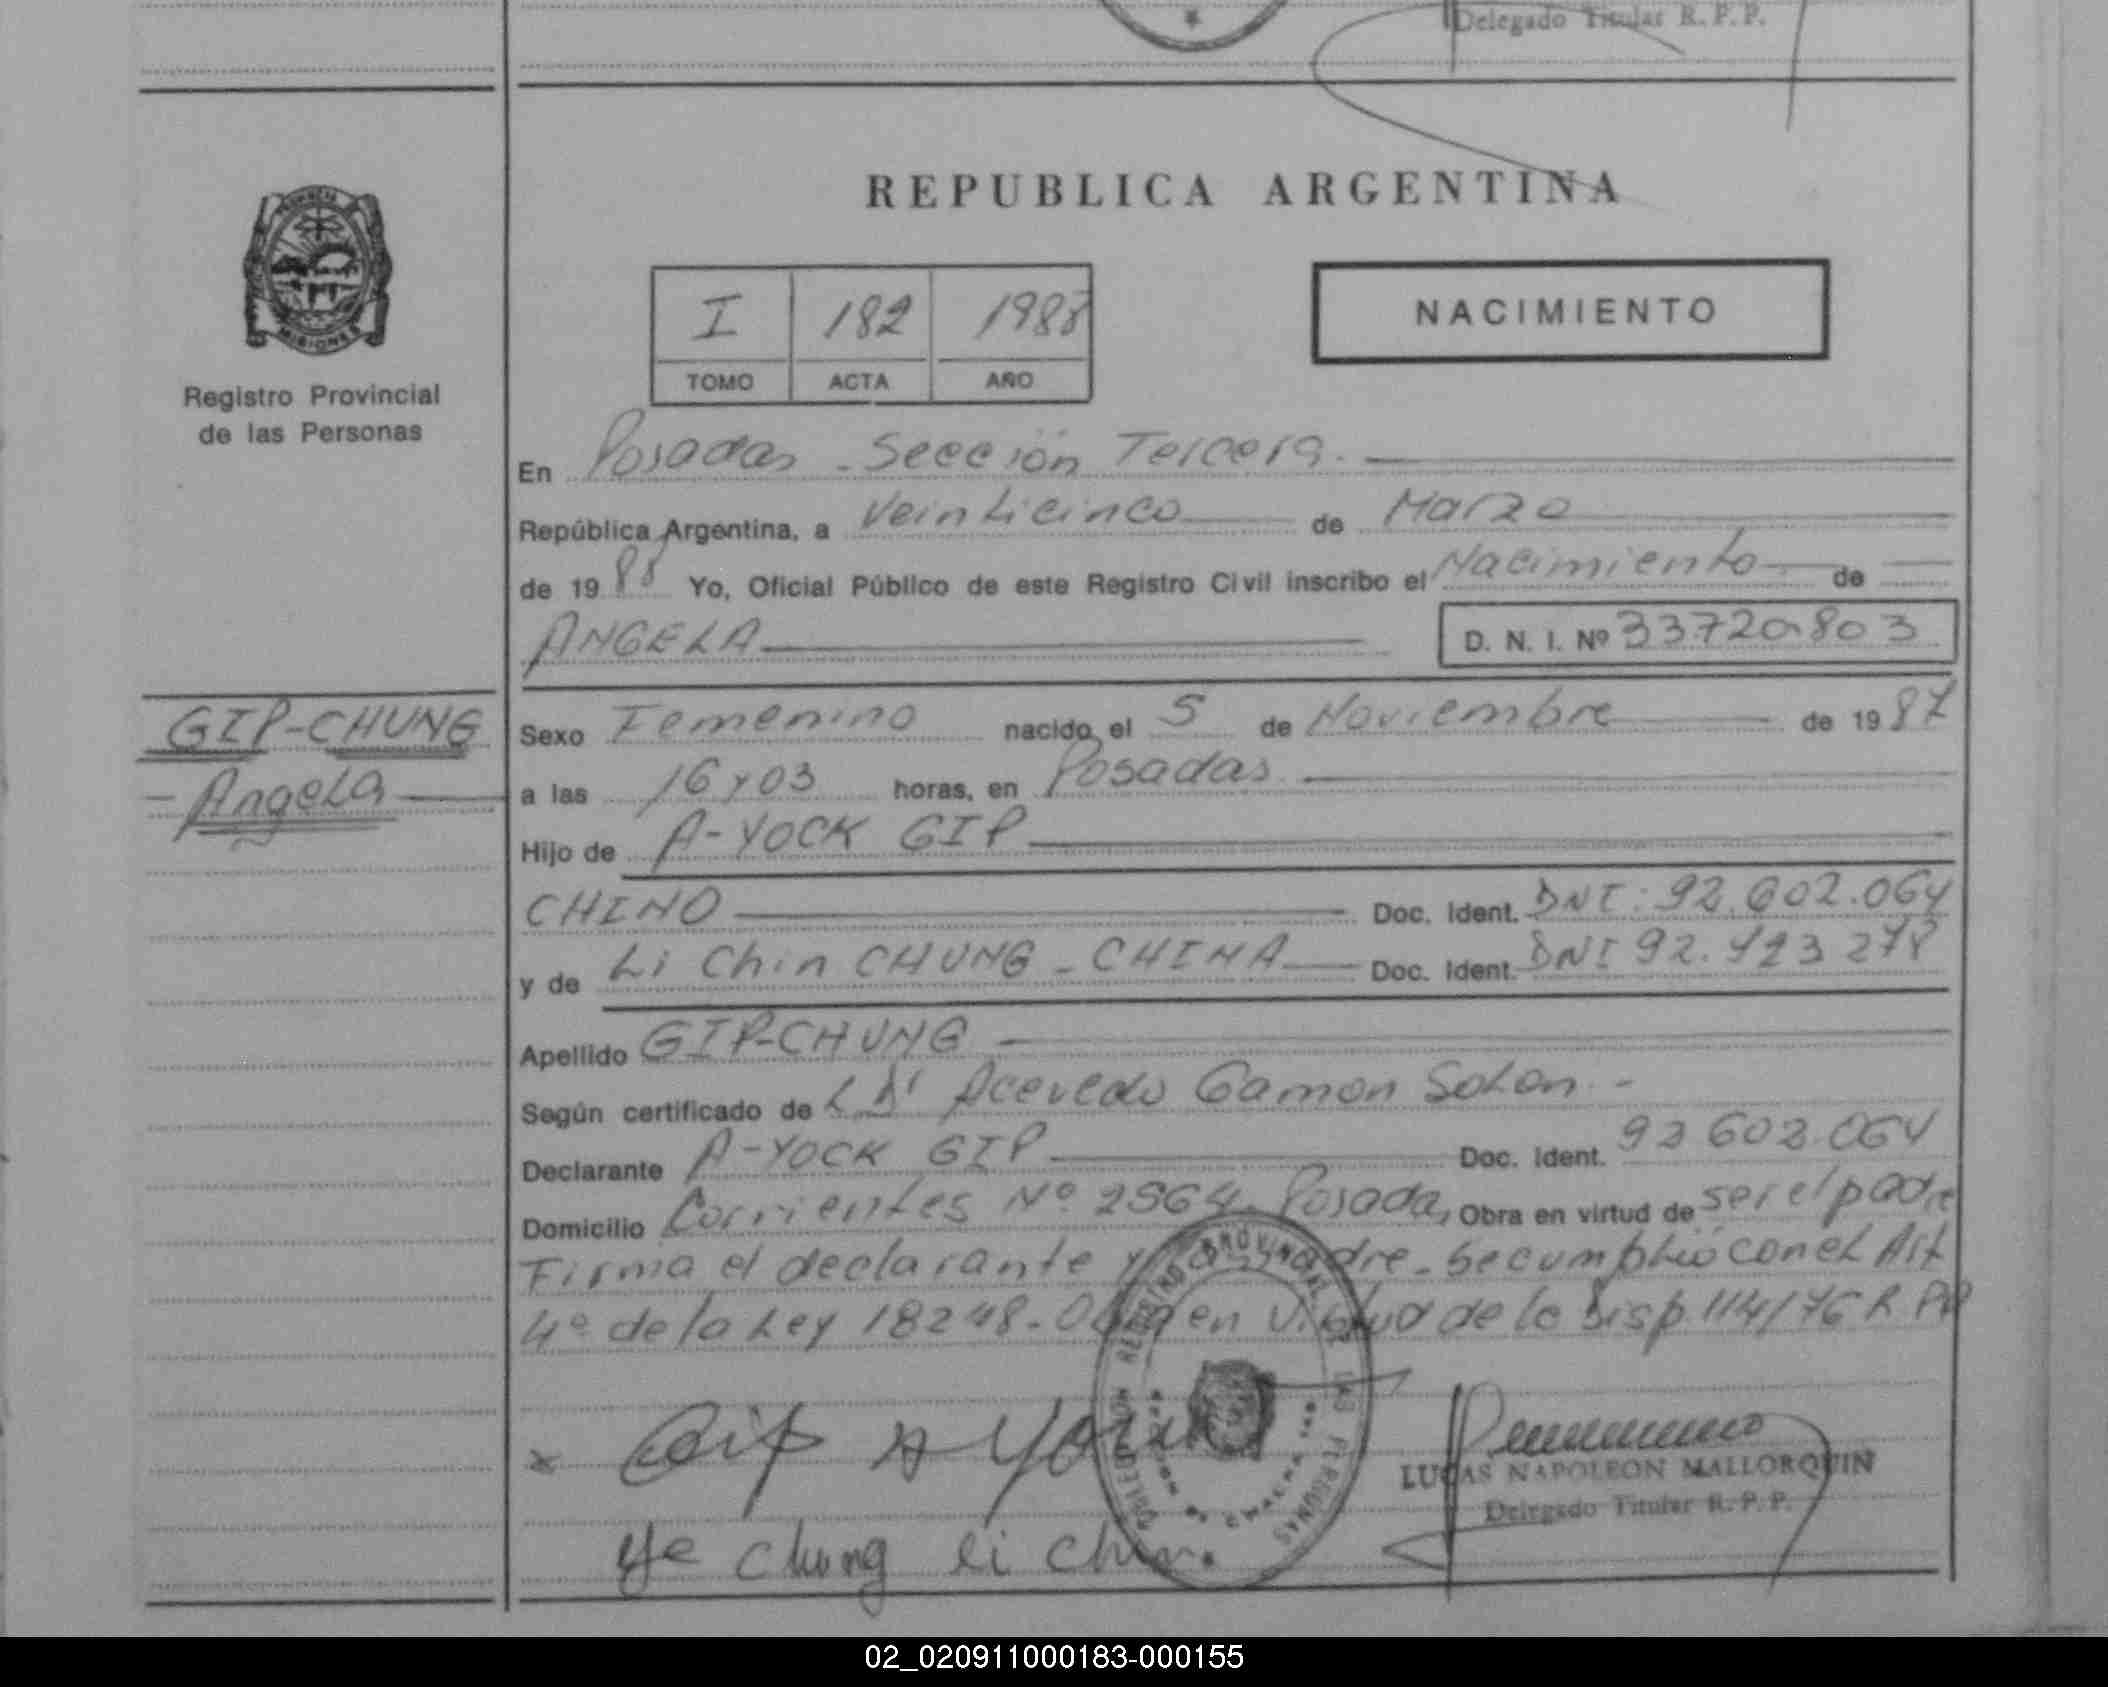 Delegado Titular R. P. P.
PROVINCIA
MISIONES
Registro Provincial
de las Personas
REPUBLICA ARGENTINA
I 182 1988
TOMO ACTA AÑO
NACIMIENTO
En Posadas - Sección Tercera.
República Argentina, a Veinticinco de Marzo
de 19 88 Yo, Oficial Público de este Registro Civil inscribo el Nacimiento de
ANGELA D. N. I. Nº 33720803
GIP-CHUNG
- Angela
Sexo Femenino nacido el 5 de Noviembre de 19 87
a las 16 y 03 horas, en Posadas
Hijo de A-YOCK GIP
CHINO Doc. Ident. DNI: 92.602.064
y de Li Chin CHUNG - CHINA Doc. Ident. DNI 92. 278
Apellido GIP-CHUNG
Según certificado de Acevedo Gamon Solon. -
Declarante A-YOCK GIP Doc. Ident. 92 602.064
Domicilio Corrientes Nº 2564. Posadas Obra en virtud de ser el padre
Firma el declarante y la madre. Se cumplió con el Art
4º de la Ley 18248 - Obra en virtud de la Disp. 114/76 R PP
REGISTRO PROVINCIAL DE LAS PERSONAS
DELEGACION
x Gip A Yock
LUCAS NAPOLEON MALLORQUIN
Delegado Titular R. P. P.
Ye Chung li chin.
02_020911000183-000155